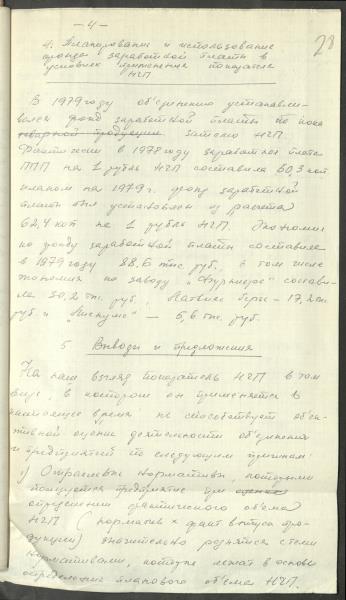 — 4 —
28
4. Планирование и использование
фонда заработной платы в
условиях применения показателя
НЧП
В 1979 году объединению устанавли-
вался фонд заработной платы по пока
товарной продукции зателю НЧП.
Фактически в 1978 году заработная плата
ППП на 1 рубль НЧП составила 60,3 коп
планом на 1979 г. фонд заработной
платы был установлен из расчета
62,4 коп на 1 рубль НЧП. Экономия
по фонду заработной платы составила
в 1979 году 88.6 тыс. руб., в том числе
экономия по заводу состави-
ла 50,2 тыс. руб, 17,2 т.
руб и — 5,6 т. руб.
5 Выводы и предложения
На наш взгляд показатель НЧП в том
виде, в котором он применяется в
настоящее время не способствует объек-
тивной оценке деятельности объединения
и предприятий по следующим причинам:
1) Отраслевые нормативы, которыми
пользуется предприятие при
определении фактического объема
НЧП (норматив × факт выпуска про-
дукции) значительно разнятся с теми
нормативами, которые лежат в основе
определения планового объема НЧП.